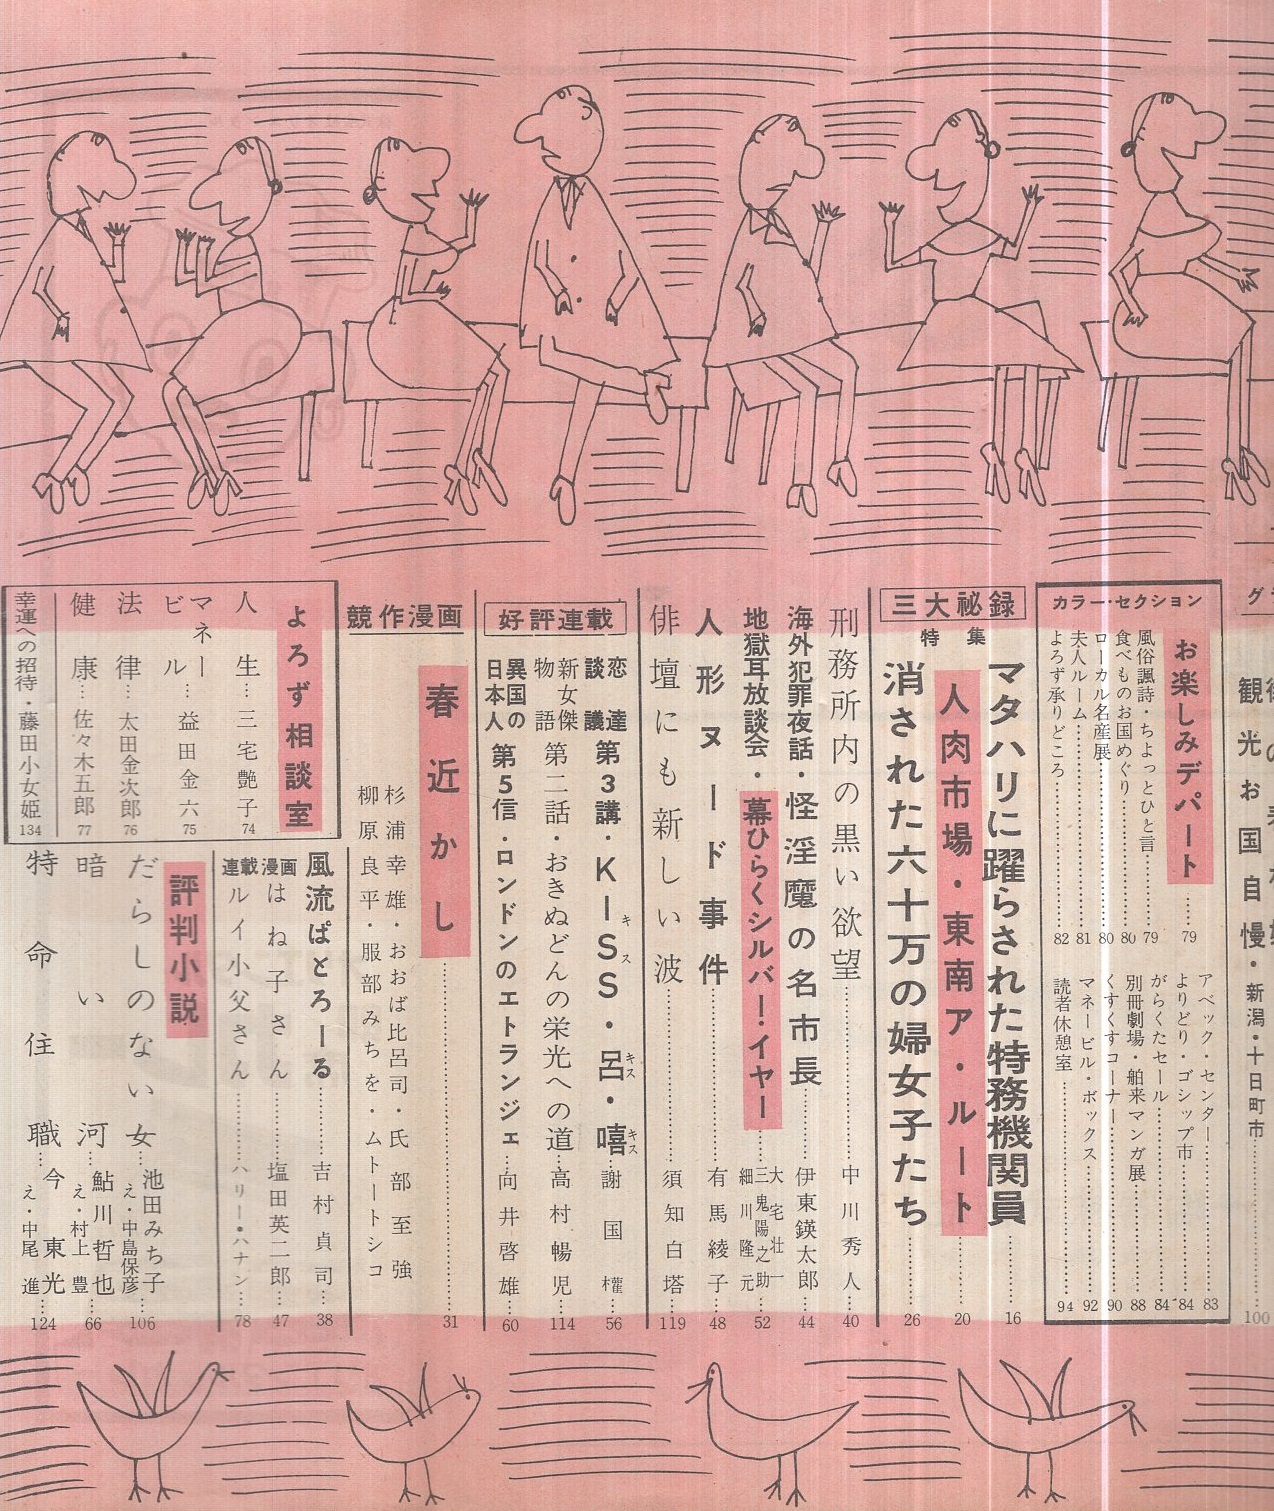 観光お国自慢・新潟・十日町市……100
カラー・セクション
お楽しみデパート……79
風俗諷詩・ちょっとひと言……79
食べものお国めぐり……80
ローカル名産展……80
夫人ルーム……81
よろず承りどころ……82
アベック・センター……83
よりどり・ゴシップ市……84
がらくたセール……84
別冊劇場・舶来マンガ展……88
くすくすコーナー……90
マネービル・ボックス……92
読者休憩室……94
三大祕録
特集
マタハリに躍らされた特務機関員……16
人肉市場・東南ア・ルート……20
消された六十万の婦女子たち……26
刑務所内の黒い欲望……中川秀人…40
海外犯罪夜話・怪淫魔の名市長……伊東鍈太郎…44
地獄耳放談会・幕ひらくシルバー・イヤー…大宅壮一 三鬼陽之助 細川隆元…52
人形ヌード事件……有馬綾子…48
俳壇にも新しい波……須知白塔…119
好評連載
恋達談議 第3講・KISS・呂・嘻…謝国権…56
キス
キス
キス
新女傑物語 第二話・おきぬどんの栄光への道…高村暢児…114
異国の日本人 第5信・ロンドンのエトランジェ…向井啓雄…60
競作漫画
春近かし……31
杉浦幸雄・おおば比呂司・氏部至強
柳原良平・服部みちを・ムトートシコ
よろず相談室
人生…三宅艶子 74
マネービル…益田金六 75
法律…太田金次郎 76
健康…佐々木五郎 77
幸運への招待・藤田小女姫 134
風流ぱとろーる……吉村貞司…38
連載漫画
はね子さん……塩田英二郎…47
ルイ小父さん……ハリー・ハナン…78
評判小説
だらしのない女…池田みち子 え・中島保彦…106
暗い河…鮎川哲也 え・村上豊…66
特命住職…今東光 え・中尾進…124